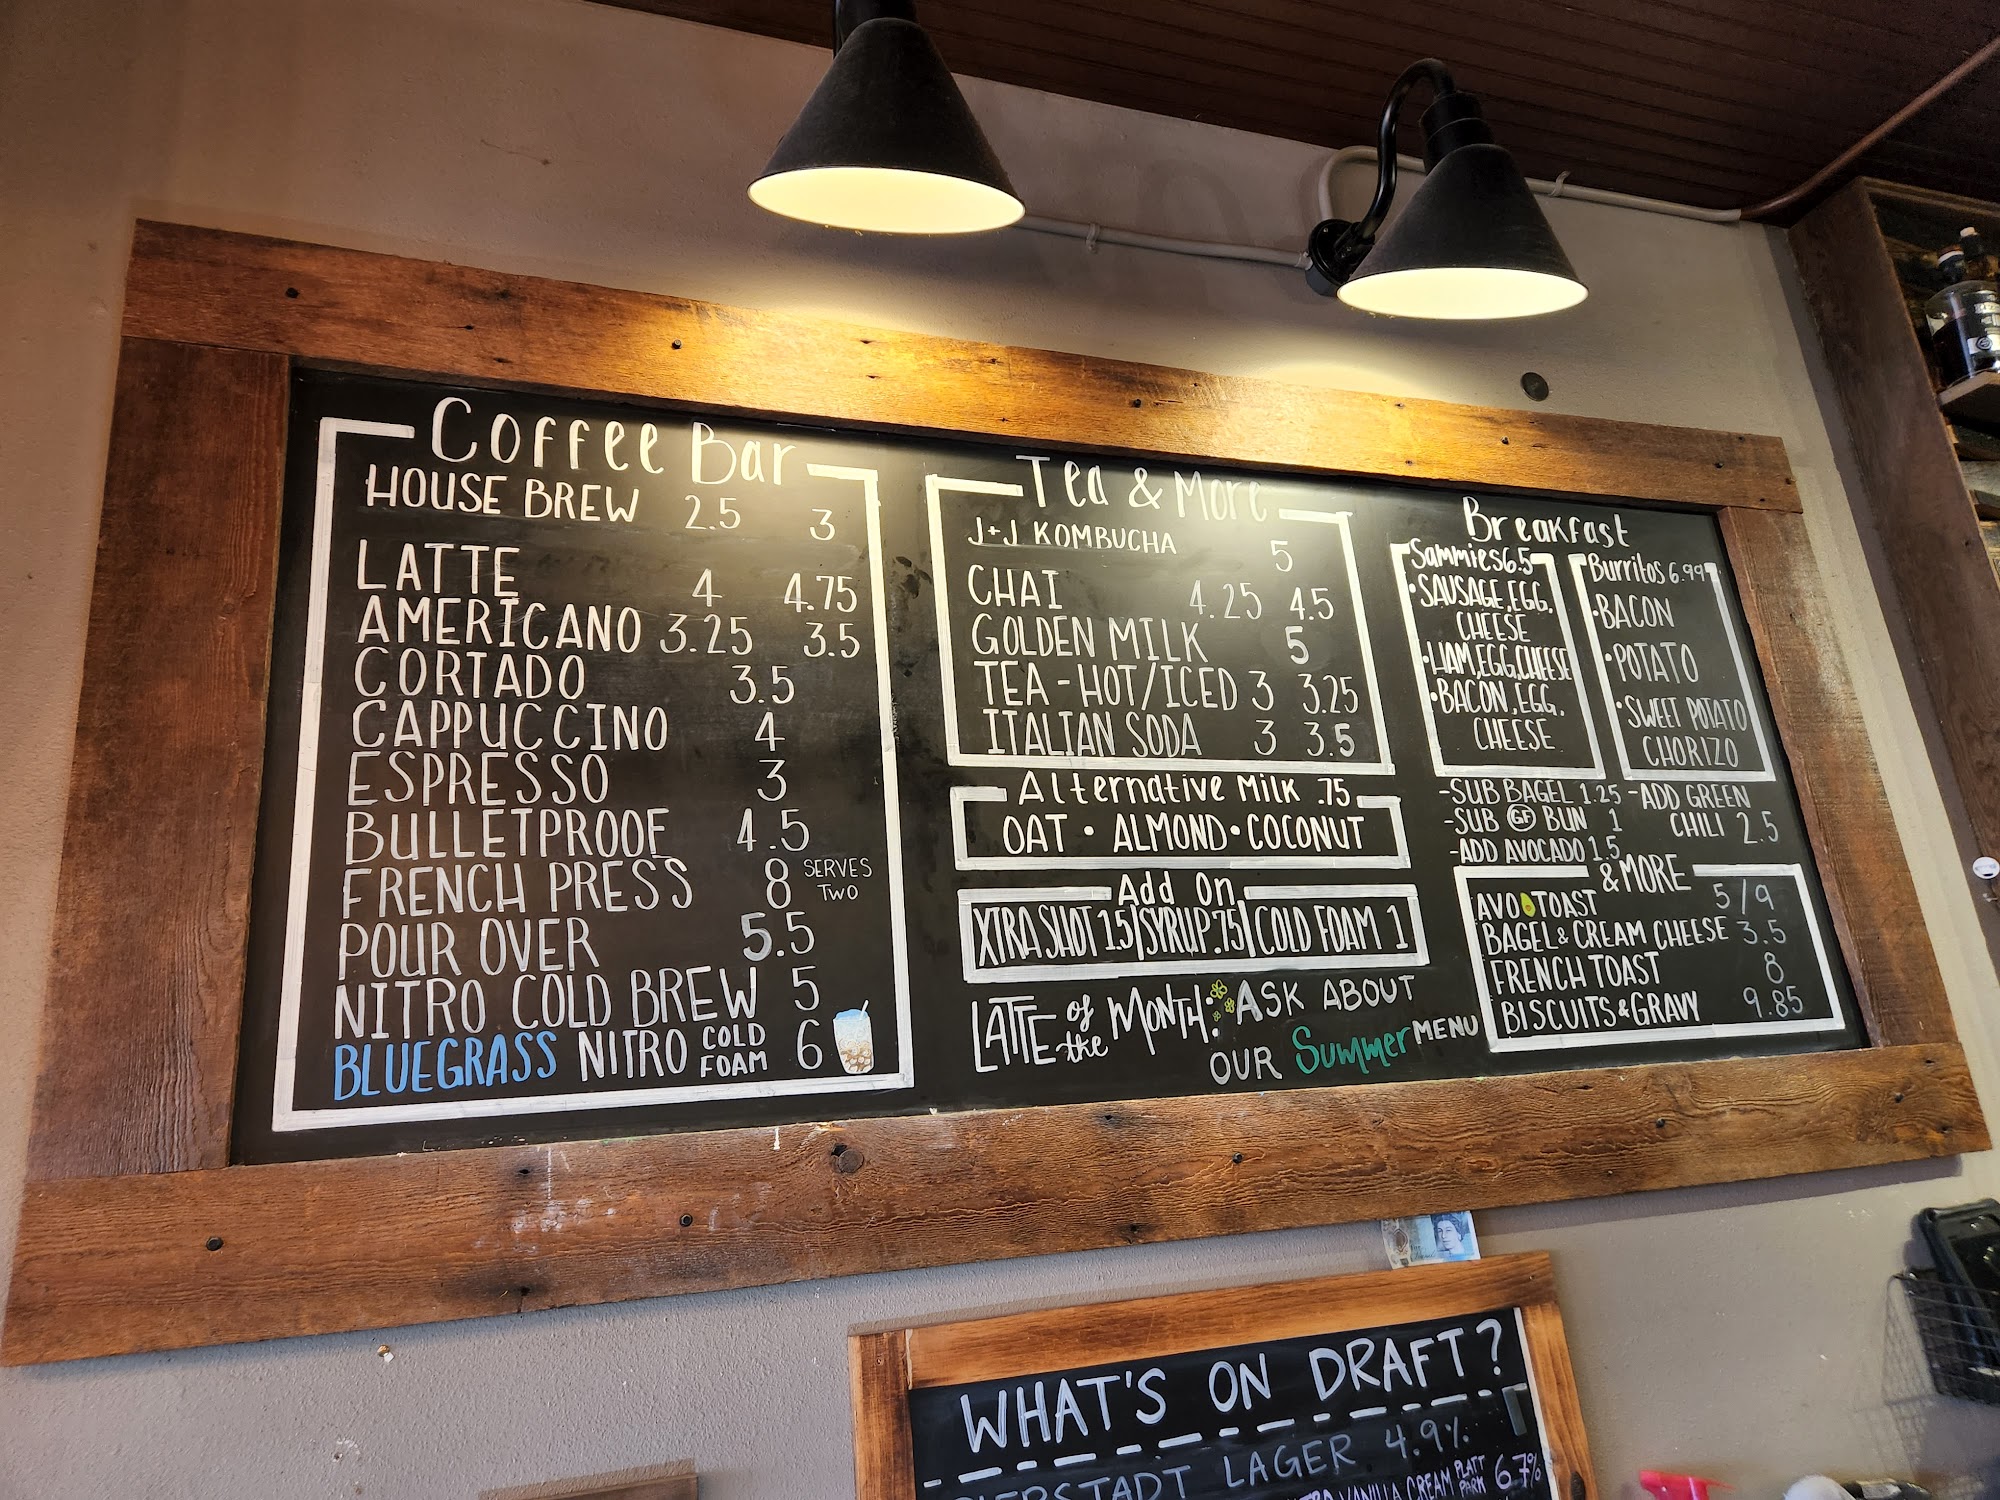 Coffee Bar
HOUSE BREW 2.5 3
LATTE 4 4.75
AMERICANO 3.25 3.5
CORTADO 3.5
CAPPUCCINO 4
ESPRESSO 3
BULLETPROOF 4.5
FRENCH PRESS 8 SERVES TWO
POUR OVER 5.5
NITRO COLD BREW 5
BLUEGRASS NITRO COLD FOAM 6
Tea & More
J+J KOMBUCHA 5
CHAI 4.25 4.5
GOLDEN MILK 5
TEA-HOT/ICED 3 3.25
ITALIAN SODA 3 3.5
Alternative Milk .75
OAT • ALMOND • COCONUT
Add On
XTRA SHOT 1.5 | SYRUP .75 | COLD FOAM 1
LATTE of the MONTH: ASK ABOUT
OUR Summer MENU
Breakfast
Sammies 6.5
• SAUSAGE, EGG,
CHEESE
• HAM, EGG, CHEESE
• BACON, EGG,
CHEESE
-SUB BAGEL 1.25
-SUB GF BUN 1
-ADD AVOCADO 1.5
Burritos 6.99
• BACON
• POTATO
• SWEET POTATO
CHORIZO
-ADD GREEN
CHILI 2.5
& MORE
AVO TOAST 5/9
BAGEL & CREAM CHEESE 3.5
FRENCH TOAST 8
BISCUITS & GRAVY 9.85
WHAT'S ON DRAFT?
LAGER 4.9%
VANILLA CREAM PLATT PARK 6.7%